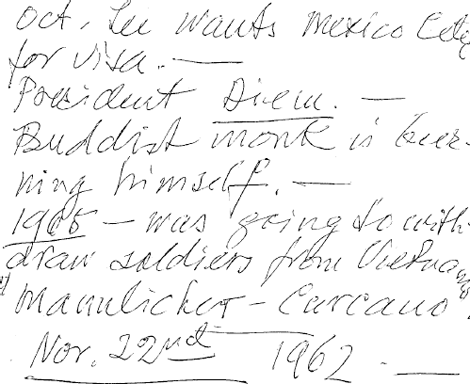 Oct. Lee wants Mexico City
for visa. —
President Diem. —
Buddist monk is bur-
ning himself. —
1965 — was going to with-
draw soldiers from Vietnam
Mannlicher - Carcano.
Nov. 22nd 1962. —